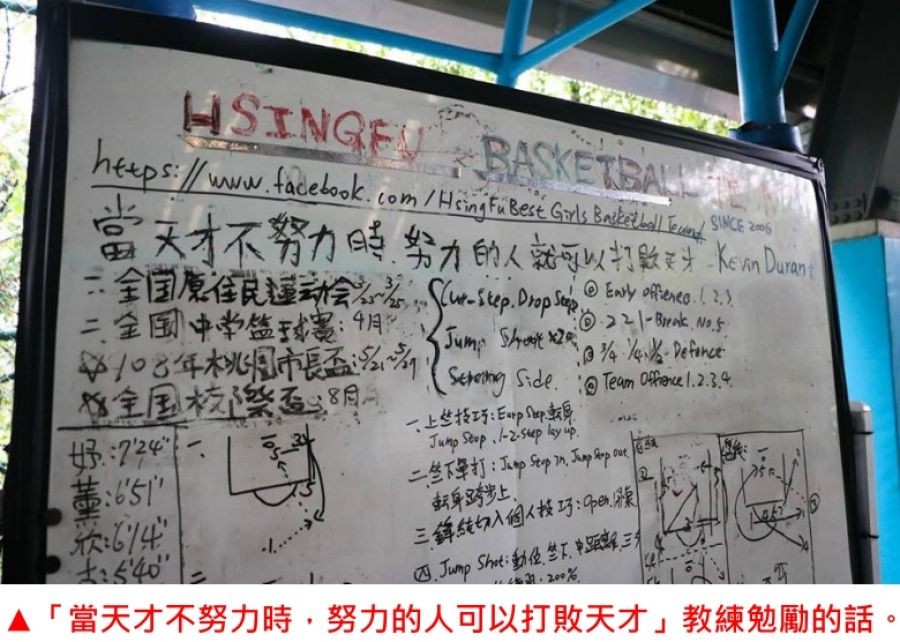 HSINGFU BASKETBALL TE
https://www.facebook.com/HsingFuBest Girls Basketball
SINCE 2005
當天才不努力時.努力的人就可以打敗天才 - Kevin Duran
一:全国原住民運动会3/23~3/25
二:全国中学篮球賽:4月
108年桃園市長盃:5/21~5/27
全国校際盃:8月
Cut-Step. Drop Step
Jump Shoot
Side.
Early offence. 1. 2. 3.
221-Break. No.5
3/4 1/4. 1/2 Defence
Team Offence 1. 2. 3. 4.
妤:7'24"
董:6'51"
欣:6'14"
5'40"
一.
一.上篮技巧:Euro Step. 転身
Jump Stop. 1-2-step lay up.
二.篮下單打:Jump Stop In. Jump Stop out.
転身跨步上
三.鋒線切入個人技巧:Open.
四.Jump Shot:動位.篮下.中距離.三分
200%
▲「當天才不努力時,努力的人可以打敗天才」教練勉勵的話。